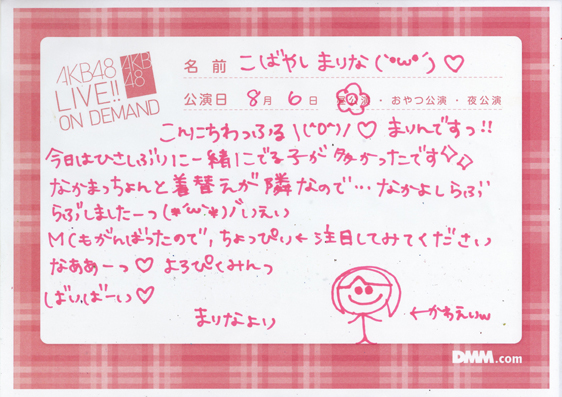 AKB48
LIVE!!
ON DEMAND
AKB
48
名前 こばやし まりな (`•ω•´) ♡
公演日 8月 6日 昼公演・おやつ公演・夜公演
こんにちわっふる \(^O^)/ ♡ まりんですっ!!
今日はひさしぶりに一緒にでる子が多かったです✧✧
なかまっちょんと着替えが隣なので…なかよしらぶ
らぶしましたーっ(*´ω`*)/いえい
MCもがんばったので、ちょっぴり←注目してみてください
なああーっ♡ よろぴくみんっ
ばいばーい♡
まりなより
←かわえいw
DMM.com